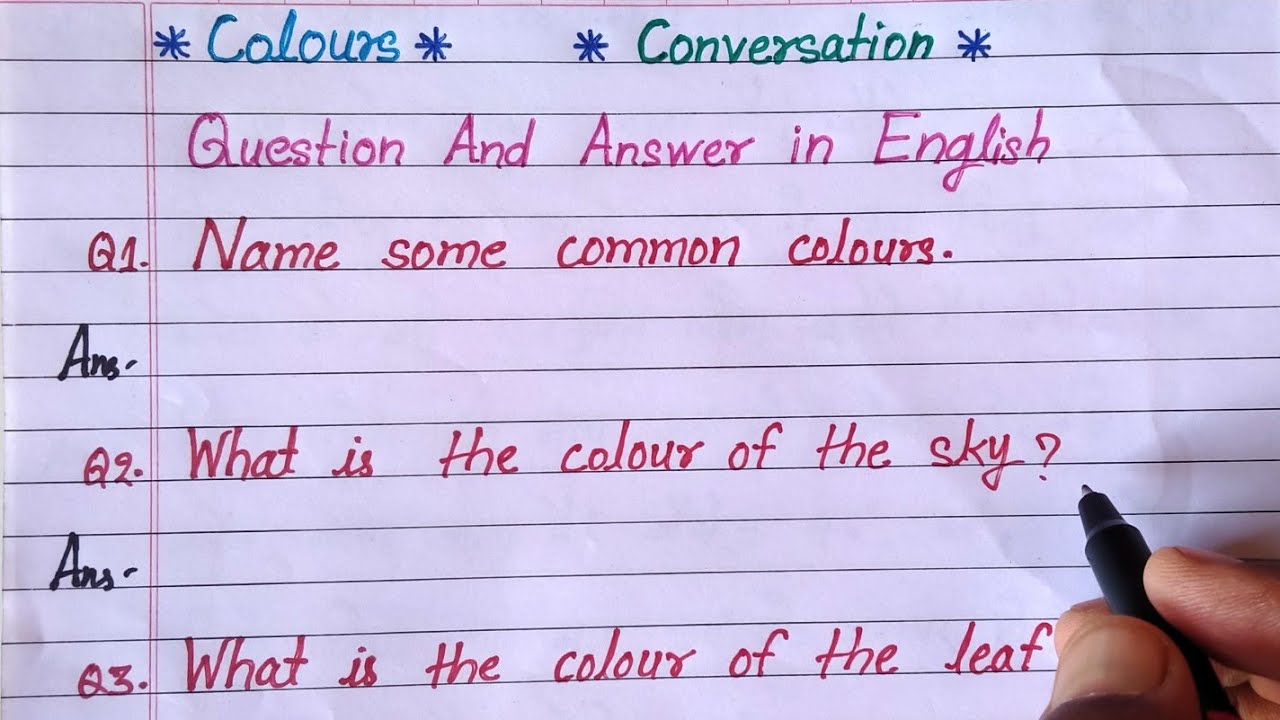 * Colours * * Conversation *
Question And Answer in English
Q1. Name some common colours.
Ans.
Q2. What is the colour of the sky?
Ans.
Q3. What is the colour of the leaf